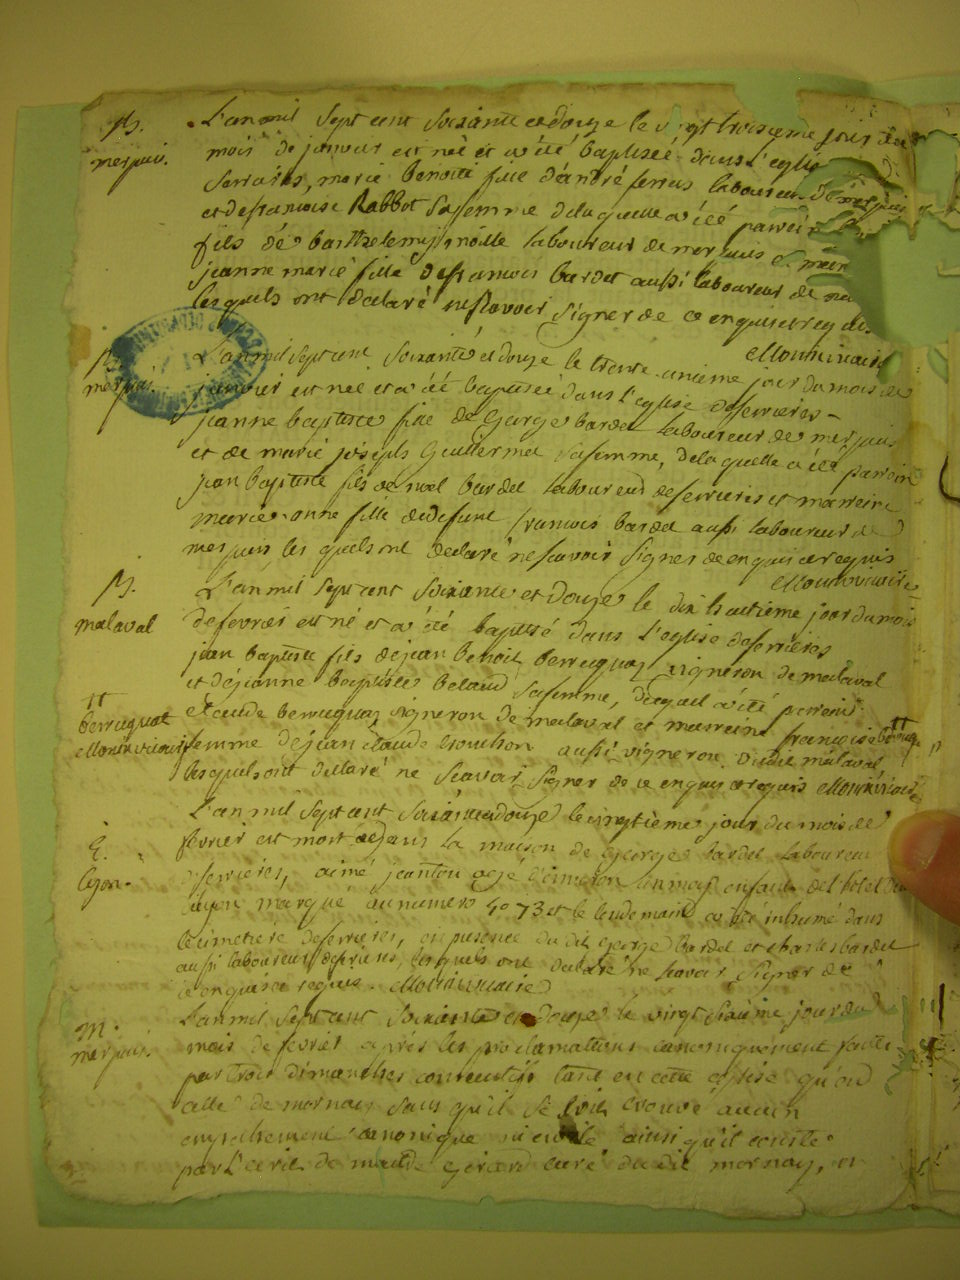 B.
merpuis.
L'an mil sept cent soixante et douze le vingt troisieme jour du
mois de janvier est neé et a été baptiseé dans l'eglise
serrieres, marie benoite fille d'andré ferrus laboureur de merpuis
et de francoise Rabbot sa femme de laquelle a été parrein
fils dé barthelemy laboureur de merpuis et
jeanne marie fille de francois bardet aussi laboureur de
lesquels ont declaré ne scavoir signer de ce enquis et requis
Monin vicaire
B.
merpuis
L'an mil sept cent soixante et douze le trente unieme jour du mois de
janvier est neé et a été baptiseé dans l'eglise de serrieres
jeanne baptiste fille de George bardet laboureur de merpuis
et de marie joseph Guillermet sa femme, de laquelle a été parrein
jean baptiste fils de noel bardet laboureur de serrieres et marreine
marie anne fille de defunt francois bardet aussi laboureur de
merpuis les quels ont declaré ne scavoir signer de ce enquis et requis
Monin vicaire
B.
malaval
L'an mil sept cent soixante et douze le dix huitieme jour du mois
de fevrier est né et a été baptisé dans l'eglise de serrieres
jean baptiste fils de jean benoit berruquaz vigneron de malaval
et de jeanne baptiste belaud sa femme, duquel a été parrein
Claude berruquaz vigneron de malaval et marreine francoise
berruquat
Monin vicaire
femme de jean claude aussi vigneron dudit malaval
lesquels ont declaré ne scavoir signer de ce enquis et requis Monin vicaire
E.
lyon.
L'an mil sept cent soixante et douze le vingtieme jour du mois de
fevrier est mort dedans la maison de George bardet laboureur
de serrieres, aimé jeanton agé d'environ un mois enfant de l'hotel Dieu
de lyon marqué au numero 4073 et le lendemain a été inhumé dans
le cimetiere de serrieres, en presence du dit George bardet et charles bardet
aussi laboureur de serrieres, lesquels ont declaré ne scavoir signer de
ce enquis et requis. Monin vicaire
M.
merpuis.
L'an mil sept cent soixante et douze le vingt sixieme jour du
mois de fevrier apres les proclamations canoniquement faites
par trois dimanches consecutifs tant en cette eglise qu'en
celle de mornay sans qu'il se soit trouvé aucun
empechement canonique ni civile ainsi qu'il conste
par l'avis de Girard curé du dit mornay, et